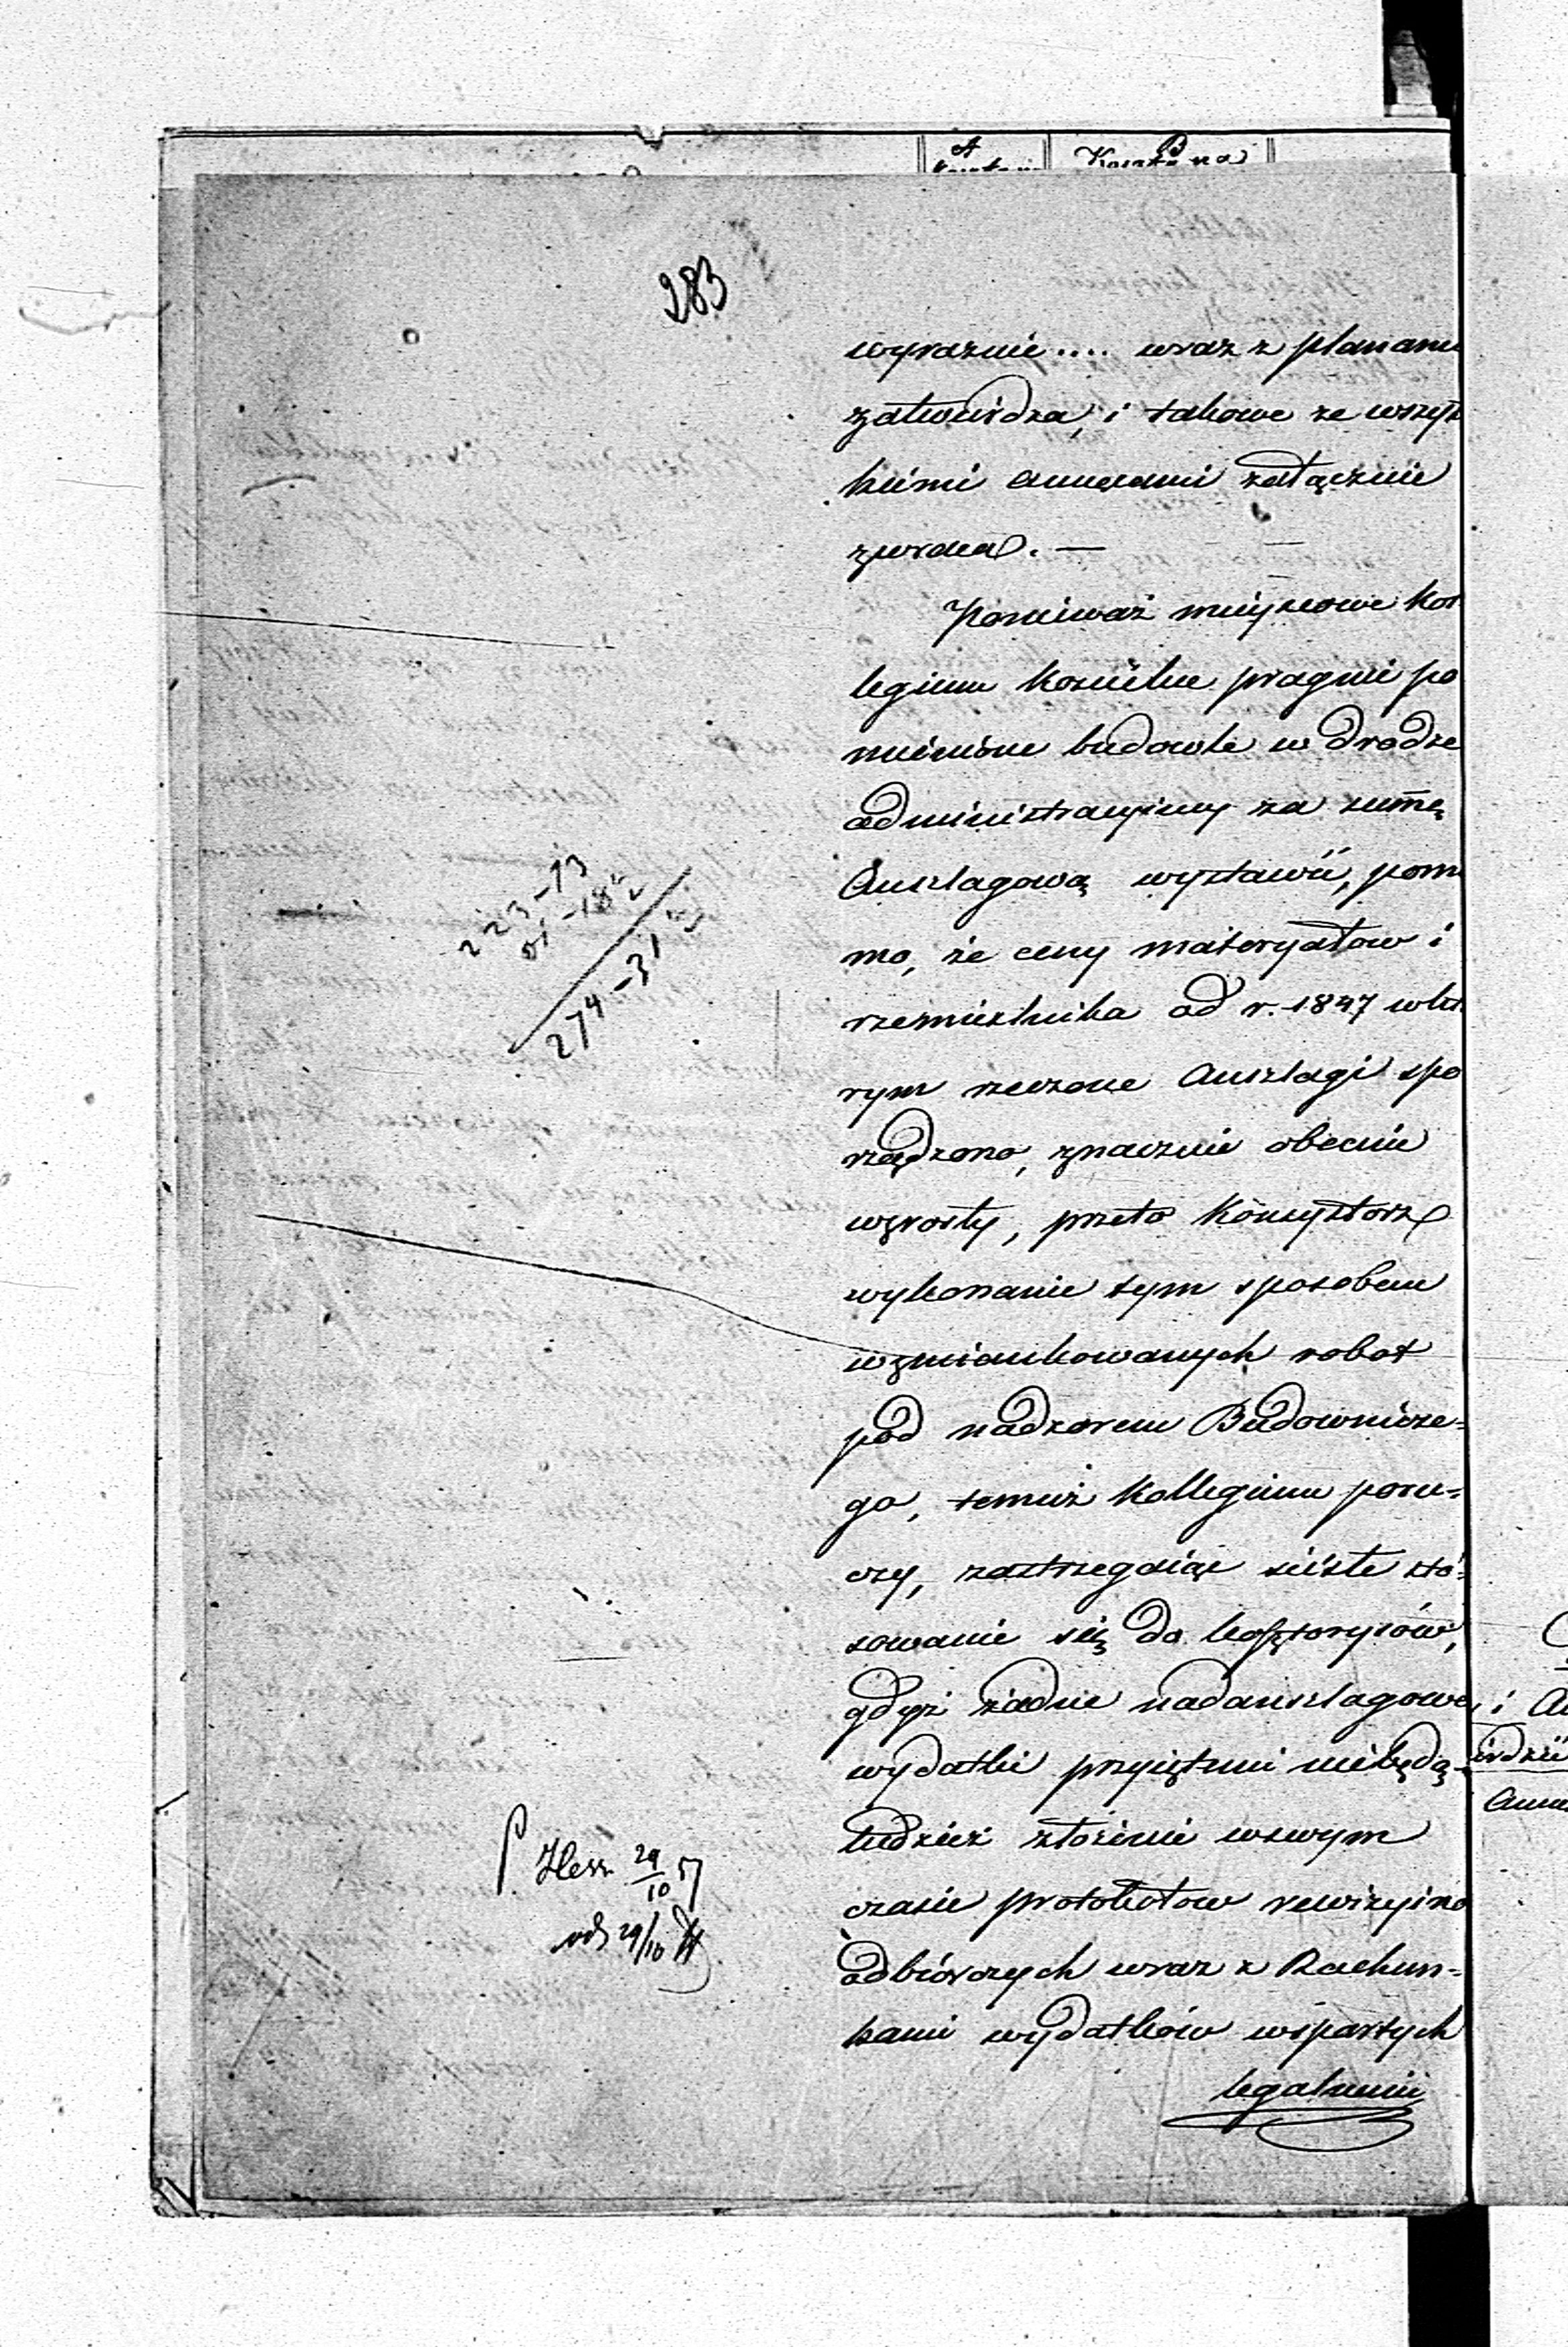 A
B
Koszta na
283
wyraznie .... wraz z planami
zatwierdza, i takowe ze wszyst
kiemi annexami załącznie
zwraca. —
Ponieważ mieyscowe Kol
legium kościelne pragnie po
mienione budowle w drodze
administracyiney za summę
Anszlagową wystawić, pomi
mo, że ceny materyałow i
rzemieślnika od r. 1847 w któ
rym rzeczone Anszlagi spo
rządzono, znacznie obecnie
wzrosły, przeto Konsystorz
wykonanie tym sposobem
wzmiankowanych robot
pod nadzorem Budownicze=
go, temuż Kollegium poru=
czy, zastrzegaiąc ścisłe stó=
sowanie się do kosztorysów,
gdyż żadne nadanszlagowe
wydatki przyiętemi niebędą
tudzież złożenie w swym
czasie protokołow rewizyino
odbiórczych wraz z Rachun=
kami wydatków wspartych
legalnemi
223-13
51-18½
274-31½
Hess 29/10 57
29/10